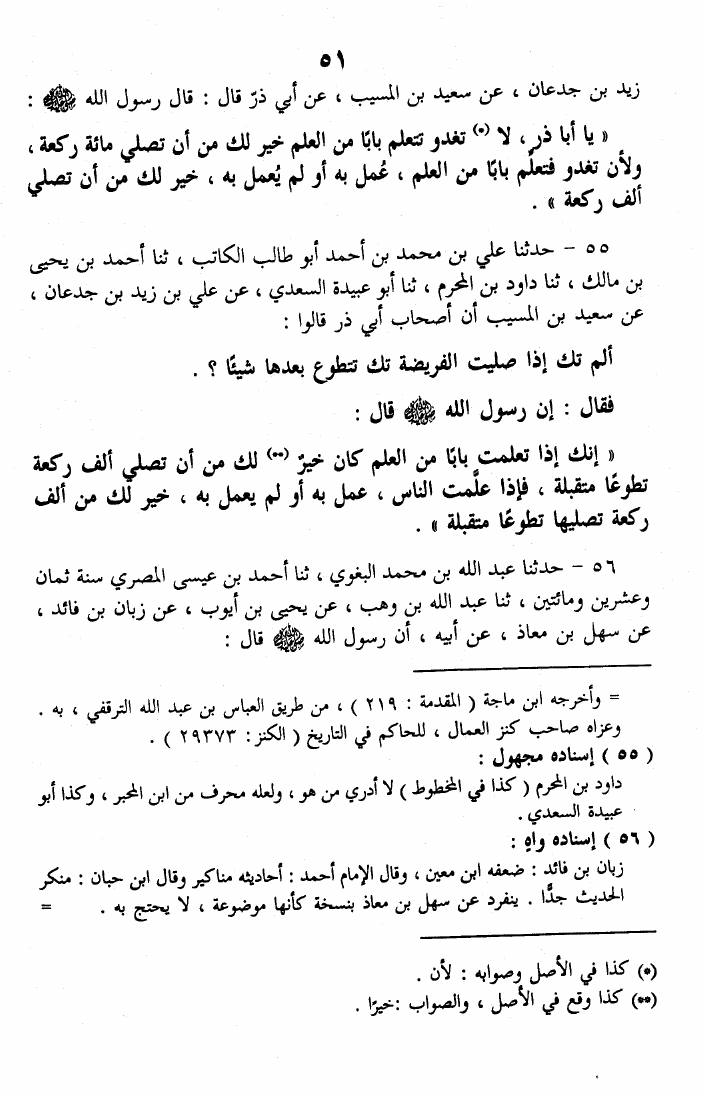 ٥١
زيد بن جدعان ، عن سعيد بن المسيب ، عن أبي ذرّ قال : قال رسول الله ﷺ :
« يا أبا ذر ، لا (*) تغدو تتعلم بابًا من العلم خير لك من أن تصلي مائة ركعة ،
ولأن تغدو فتعلَّم بابًا من العلم ، عُمل به أو لم يُعمل به ، خير لك من أن تصلي
ألف ركعة » .
٥٥ – حدثنا علي بن محمد بن أحمد أبو طالب الكاتب ، ثنا أحمد بن يحيى
بن مالك ، ثنا داود بن المحرم ، ثنا أبو عبيدة السعدي ، عن علي بن زيد بن جدعان ،
عن سعيد بن المسيب أن أصحاب أبي ذر قالوا :
ألم تك إذا صليت الفريضة تك تتطوع بعدها شيئًا ؟ .
فقال : إن رسول الله ﷺ قال :
« إنك إذا تعلمت بابًا من العلم كان خيرٌ (**) لك من أن تصلي ألف ركعة
تطوعًا متقبلة ، فإذا علَّمت الناس ، عمل به أو لم يعمل به ، خير لك من ألف
ركعة تصليها تطوعًا متقبلة » .
٥٦ – حدثنا عبد الله بن محمد البغوي ، ثنا أحمد بن عيسى المصري سنة ثمان
وعشرين ومائتين ، ثنا عبد الله بن وهب ، عن يحيى بن أيوب ، عن زبان بن فائد ،
عن سهل بن معاذ ، عن أبيه ، أن رسول الله ﷺ قال :
= وأخرجه ابن ماجة ( المقدمة : ٢١٩ ) ، من طريق العباس بن عبد الله الترقفي ، به .
وعزاه صاحب كنز العمال ، للحاكم في التاريخ ( الكنز : ٢٩٣٧٣ ) .
( ٥٥ ) إسناده مجهول :
داود بن المحرم ( كذا في المخطوط ) لا أدري من هو ، ولعله محرف من ابن المحبر ، وكذا أبو
عبيدة السعدي .
( ٥٦ ) إسناده واهٍ :
زبان بن فائد : ضعفه ابن معين ، وقال الإمام أحمد : أحاديثه مناكير وقال ابن حبان : منكر
الحديث جدًّا . ينفرد عن سهل بن معاذ بنسخة كأنها موضوعة ، لا يحتج به . =
(*) كذا في الأصل وصوابه : لأن .
(**) كذا وقع في الأصل ، والصواب :خيرًا .